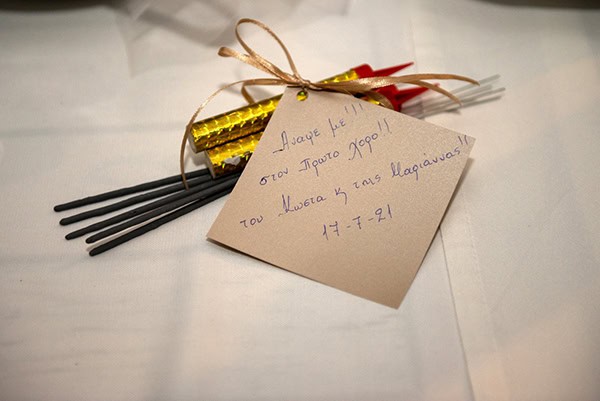 Άναψέ με!!!
στον Πρώτο Χορό!!
του Κώστα κ της Μαριάννας!!
17-7-21